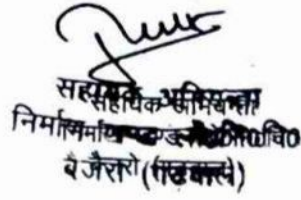 सहायक अभियन्ता
निर्माण खण्ड लो0नि0वि0
बैजरो (गढवाल)